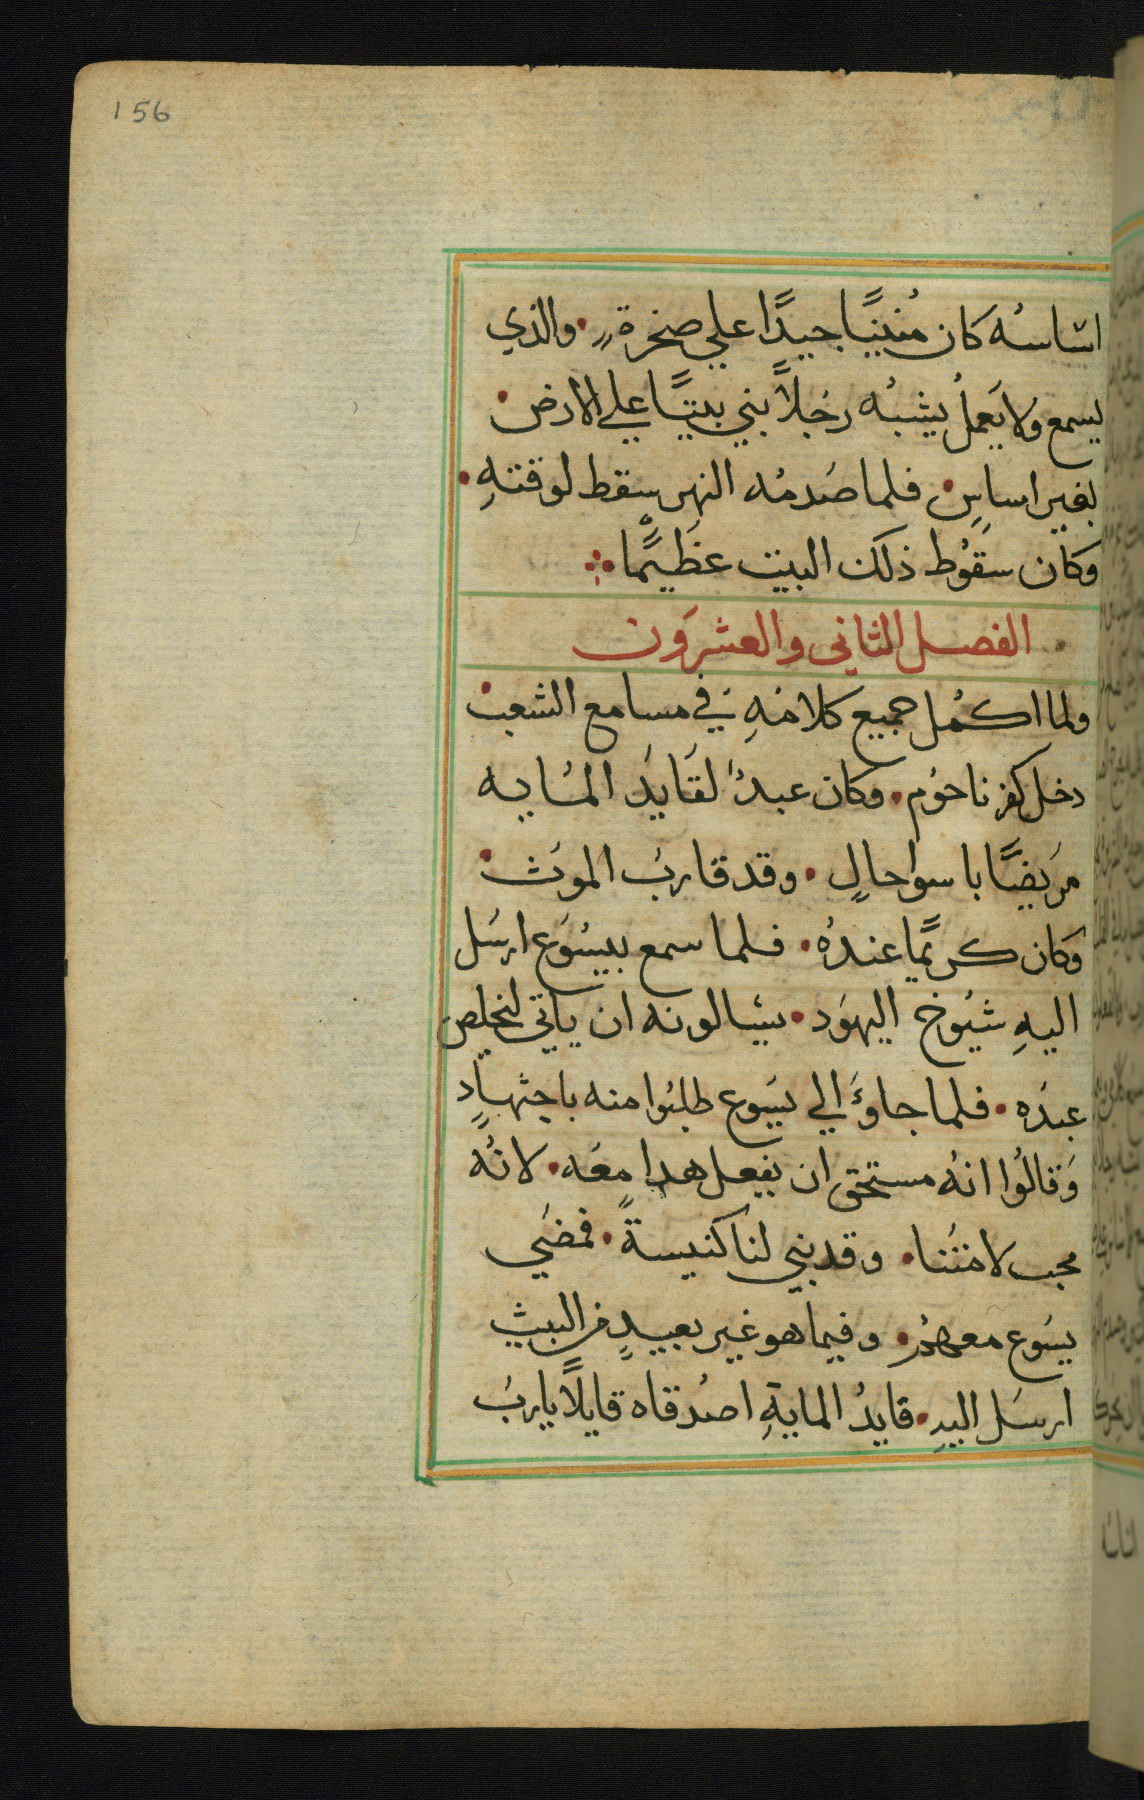 156
اساسُه كان مُبنيًا جيدًا علي صخرةٍ • والذي
يسمع ولا يَعملُ يشبُه رجُلاً بني بيتًا علي الارض •
بغير اساسٍ • فلما صَدمُه النهر سقط لوقتهِ •
وكان سقُوط ذلك البيت عظيمًا
الفصل الثاني والعشرَون
ولما اكمُل جميع كلامَهِ في مسامع الشعب •
دخل كفرناحوُم • وكان عبدُ لقَايَد المُايه
مَريضًا باسوا حالٍ • وقد قاربَ الموَت •
وكان كريمًا عندُه • فلما سمع بيسُوَع ارسَل
اليهِ شيُوخ اليهوَد • يسَالونه ان ياتي ليخلص
عبدَه • فلما جاوَء الي يسَوع طلبُوا منه باجتهادٍ
وَقالوُا انهُ مستحق ان يفعل هدا معَه • لانهُ
محب لامتُنا • وقد بني لنا كنيسةً • فمضَي
يسَوع معهمُ • وفيما هو غير بعيدٍ من البيت
ارسَل اليهِ • قايدُ المايةِ اصُدقاه قايلًا ياربَ